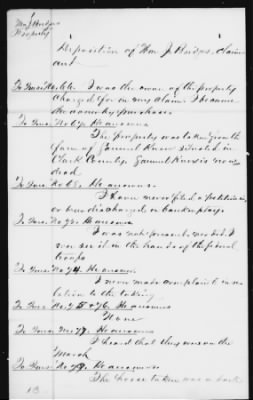 Wm J Hodges
Property
Deposition of Wm. J. Hodges, claim
ant
To Ques. No. 66. I was the owner of the property
charged for in my claim I became
the owner by purchase
To Ques. No 67. He answers
The property was taken from the
farm of Samuel Knox situated in
Clark County. Samuel Knox is now
dead.
To Ques. No 68. He answers.
I have never filed a petition in
or been discharged in bankruptcy.
To Ques. No 72. He answers
I was not present nor did I
ever see it in the hands of the federal
troops
To Ques. No 74. He answers.
I never made complaint in re
lation to the taking
To Ques. No. 75 & 76. He answers
None
To Ques. No. 77. He answers
I heard that they were on the
March
To Ques. No 78. He answers.
The horse taken was a dark